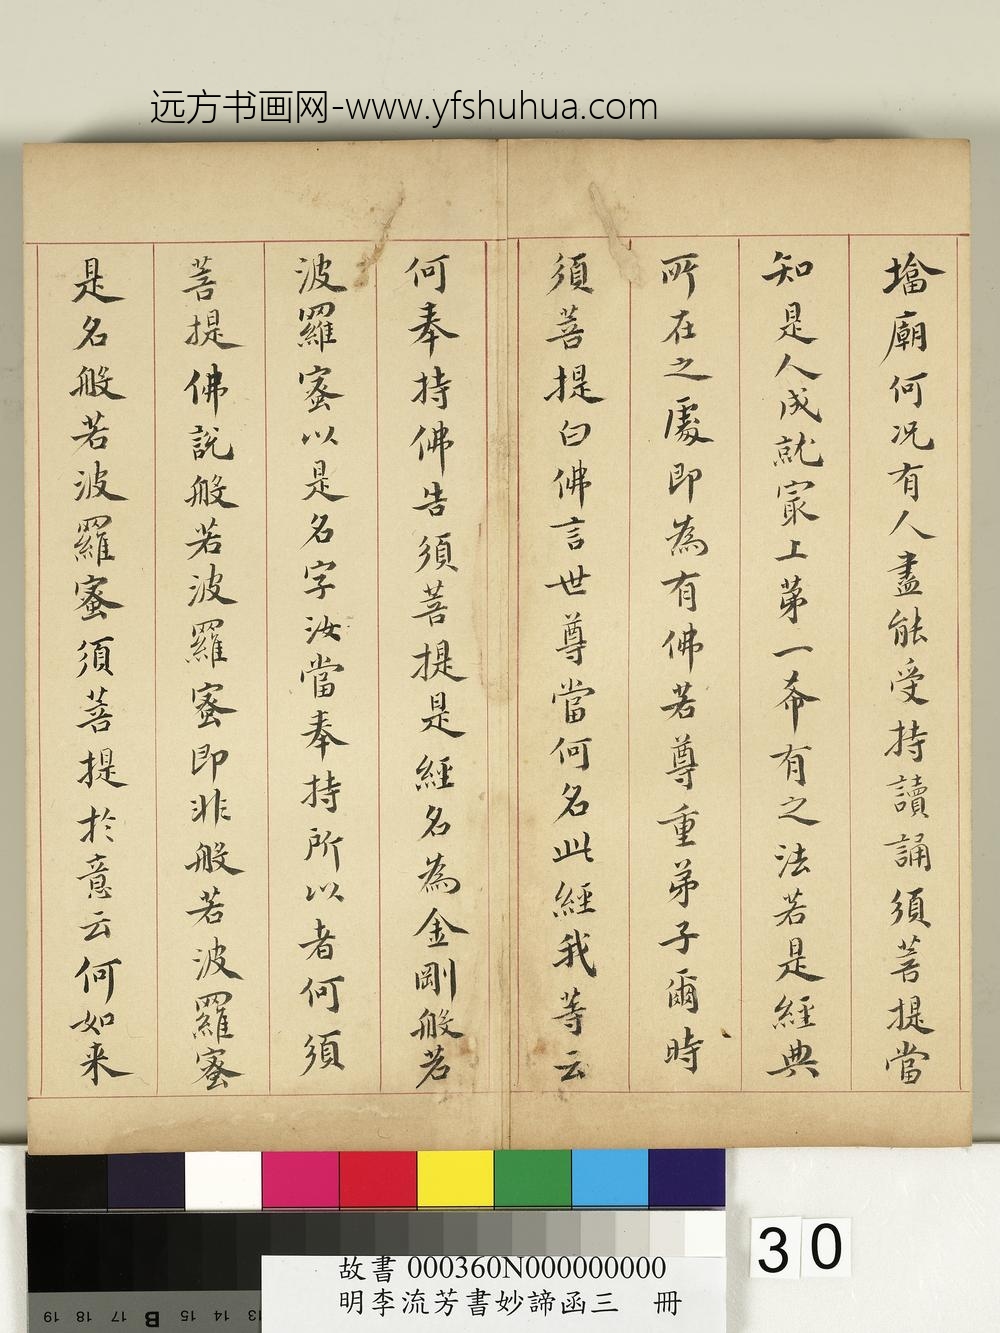 远方书画网-www.yfshuhua.com
墖廟何况有人盡能受持讀誦須菩提當
知是人成就㝡上苐一希有之法若是經典
所在之處即為有佛若尊重弟子爾時
須菩提白佛言世尊當何名此經我等云
何奉持佛告須菩提是經名為金剛般若
波羅蜜以是名字汝當奉持所以者何須
菩提佛說般若波羅蜜即非般若波羅蜜
是名般若波羅蜜須菩提於意云何如来
30
故書 000360N000000000
明李流芳書妙諦函三 冊
19 18 17 B 15 14 13